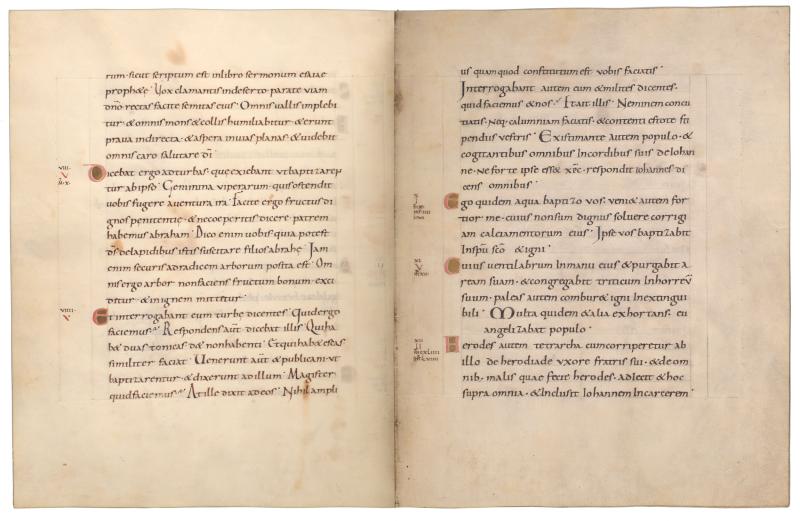 rum. sicut scriptum est inlibro sermonum esaiae
prophetae. Vox clamantis indeserto. parate viam
dño. rectas facite semitas eius. Omnis uallis implebi
tur. & omnis mons & collis humiliabitur. & erunt
praua indirecta. & aspera inuias planas. & uidebit
omnis caro salutare dī
VIII
V
Dicebat ergo adturbas. quę exiebant vt baptizaren
M. X.
tur ab ipso. Genimina viperarum. quis ostendit
vobis fugere aventura ira. Facite ergo fructus di
gnos penitentię. & neceperitis dicere patrem
habemus abraham. Dico enim uobis quia potest
dš delapidibus istis suscitare filios abrahę. Jam
enim securis adradicem arborum posita est. Om
nis ergo arbor nonfaciens fructum bonum. exci
ditur. & inignem mittetur.
VIIII
X
Et interrogabant eum turbę dicentes. Quid ergo
faciemus. Respondens aūt dicebat illis. Quiha
b& duas tonicas. d& nonhabenti. Et quihab& escas
similiter faciat. Uenerunt aūt & publicani. vt
baptizarentur. & dixerunt adillum. Magister
quid faciemus. Atille dixit adeos. Nihil ampli
us quam quod constitutum est vobis faciatis.
Interrogabant autem eum & milites dicentes.
quid faciemus & nos. Et ait illis. Neminem concu
tiatis. Neq. calumniam faciatis. & contenti estote sti
pendiis vestris. Existimante autem populo. &
cogitantibus omnibus incordibus suis de Iohan
ne. Ne forte ipse ess& xpc. respondit Iohannes di
cens omnibus.
X
I
Ego quidem aqua baptizo vos. veni& autem for
tior me. cuius nonsum dignus soluere corrigi
am calciamentorum eius. Ipse vos baptizabit
Inspū scō & igni.
XI
V
Cuius uentilabrum Inmanu eius & purgabit a
ream suam. & congregabit triticum Inhorreū
suum. paleas autem combur& igni Inextingui
bili. Multa quidem & alia exhortans. eu
angelizabat populo.
XII
II
Herodes autem tetrarcha cumcorriperetur ab
illo de herodiade vxore fratris sui. & de om
nib. malis quae fecit herodes. adiecit & hoc
supra omnia. & Inclusit Iohannem Incarcerem.